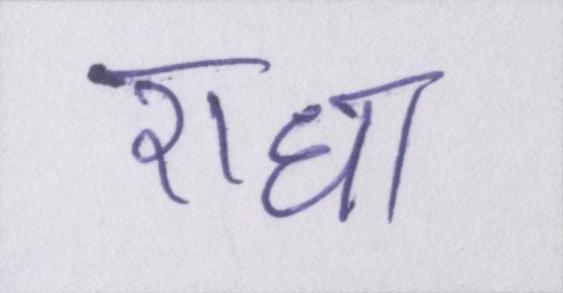 राधा